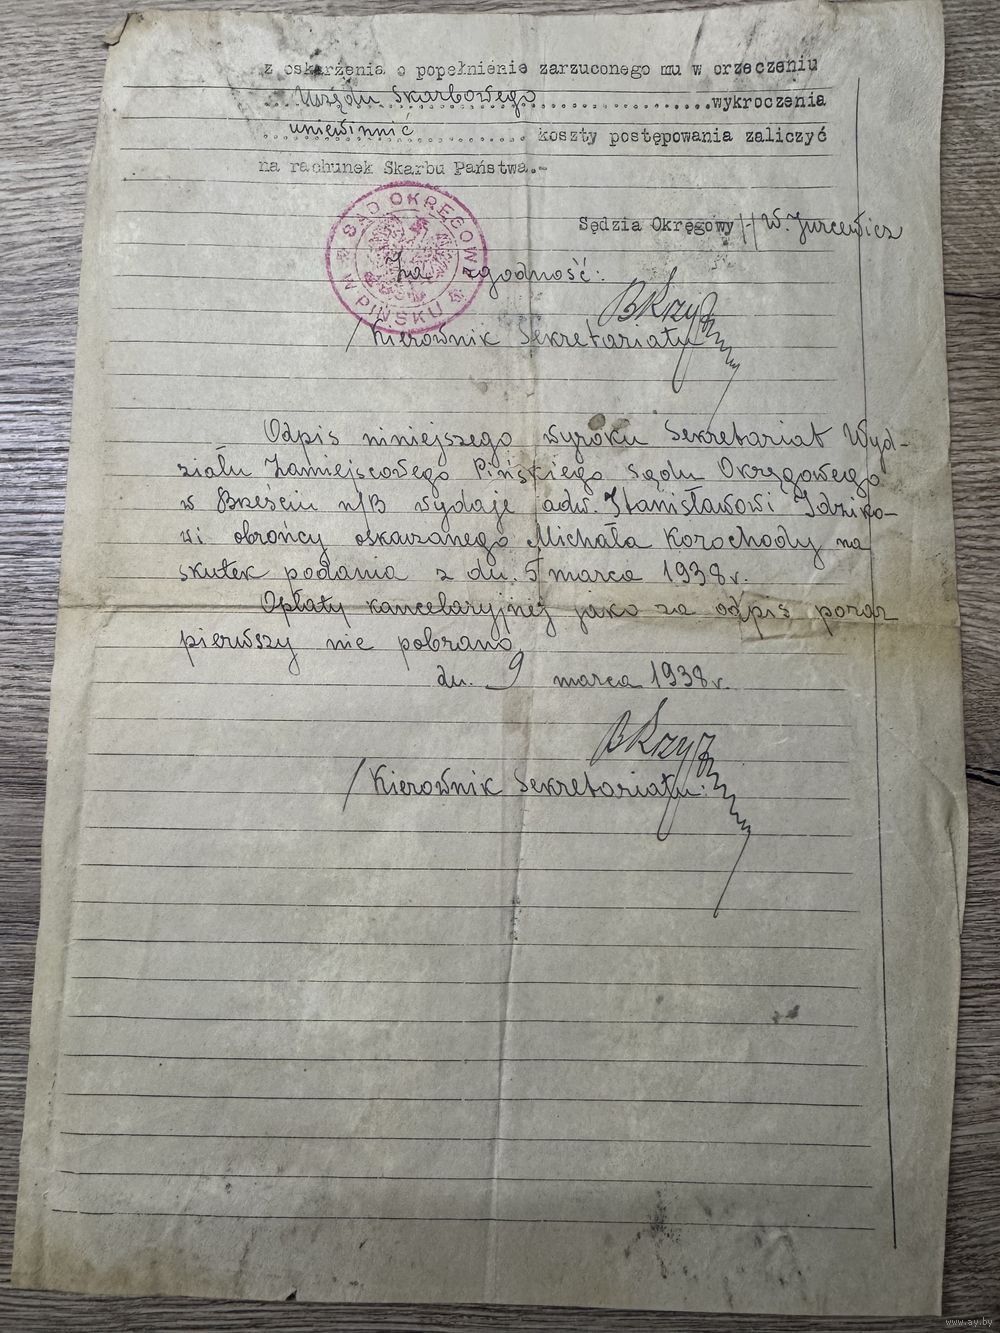 z oskarżenia o popełnienie zarzuconego mu w orzeczeniu
...Urzędu Skarbowego......................wykroczenia
...uniewinnić.............. koszty postępowania zaliczyć
na rachunek Skarbu Państwa.-
Sędzia Okręgowy /-/ W. Jurcewicz
SĄD OKRĘGOWY
W PIŃSKU
Za zgodność:
/Kierownik Sekretariatu
Odpis niniejszego wyroku Sekretariat Wyd-
ziału Zamiejscowego Pińskiego Sądu Okręgowego
w Brześciu n/B wydaje adw. Stanisławowi Idziko-
wi obrońcy oskarżonego Michała Korochody na
skutek podania z dn. 5 marca 1938 r.
Opłaty kancelaryjnej jako za odpis poraz
pierwszy nie pobrano
dn. 9 marca 1938 r.
/Kierownik Sekretariatu:
www.ay.by